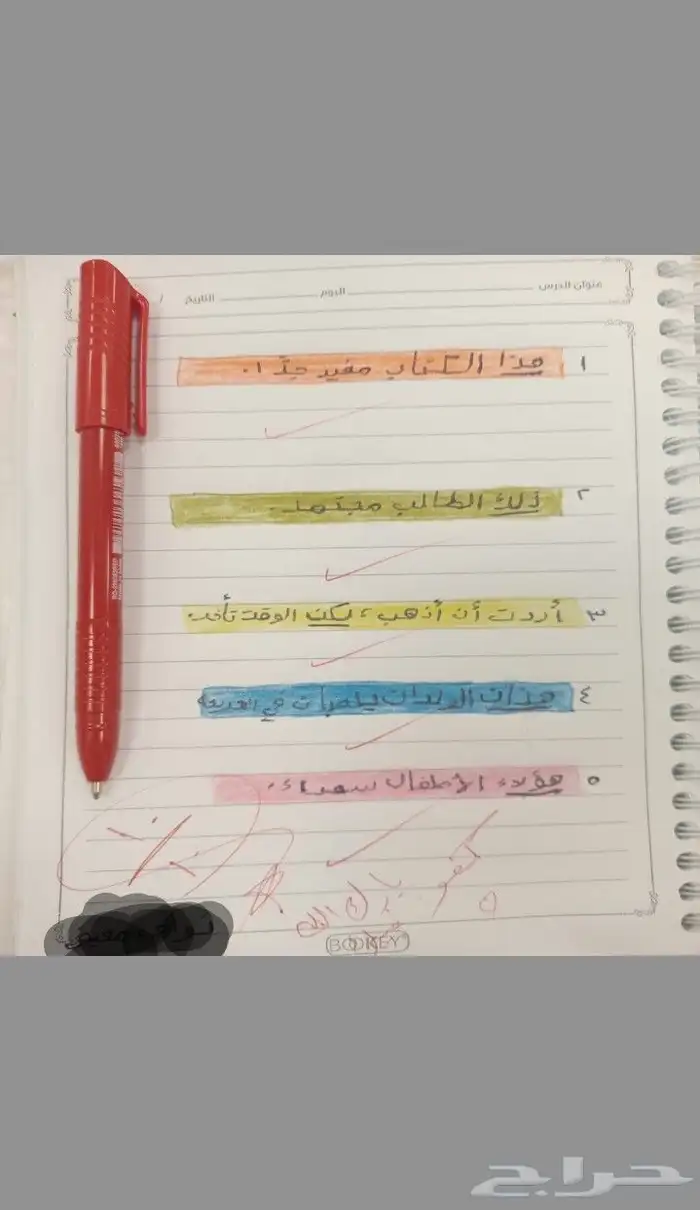 عنوان الدرس اليوم التاريخ / /
١ هذا الكتاب مفيد جدًّا.
٢ ذلك الطالب مجتهد.
٣ أردت أن أذهب، لكن الوقت تأخر
٤ هذان الولدان يلعبان في الحديقة
٥ هؤلاء الأطفال سعداء.
كفو
بارك الله
BOOKEY
حراج